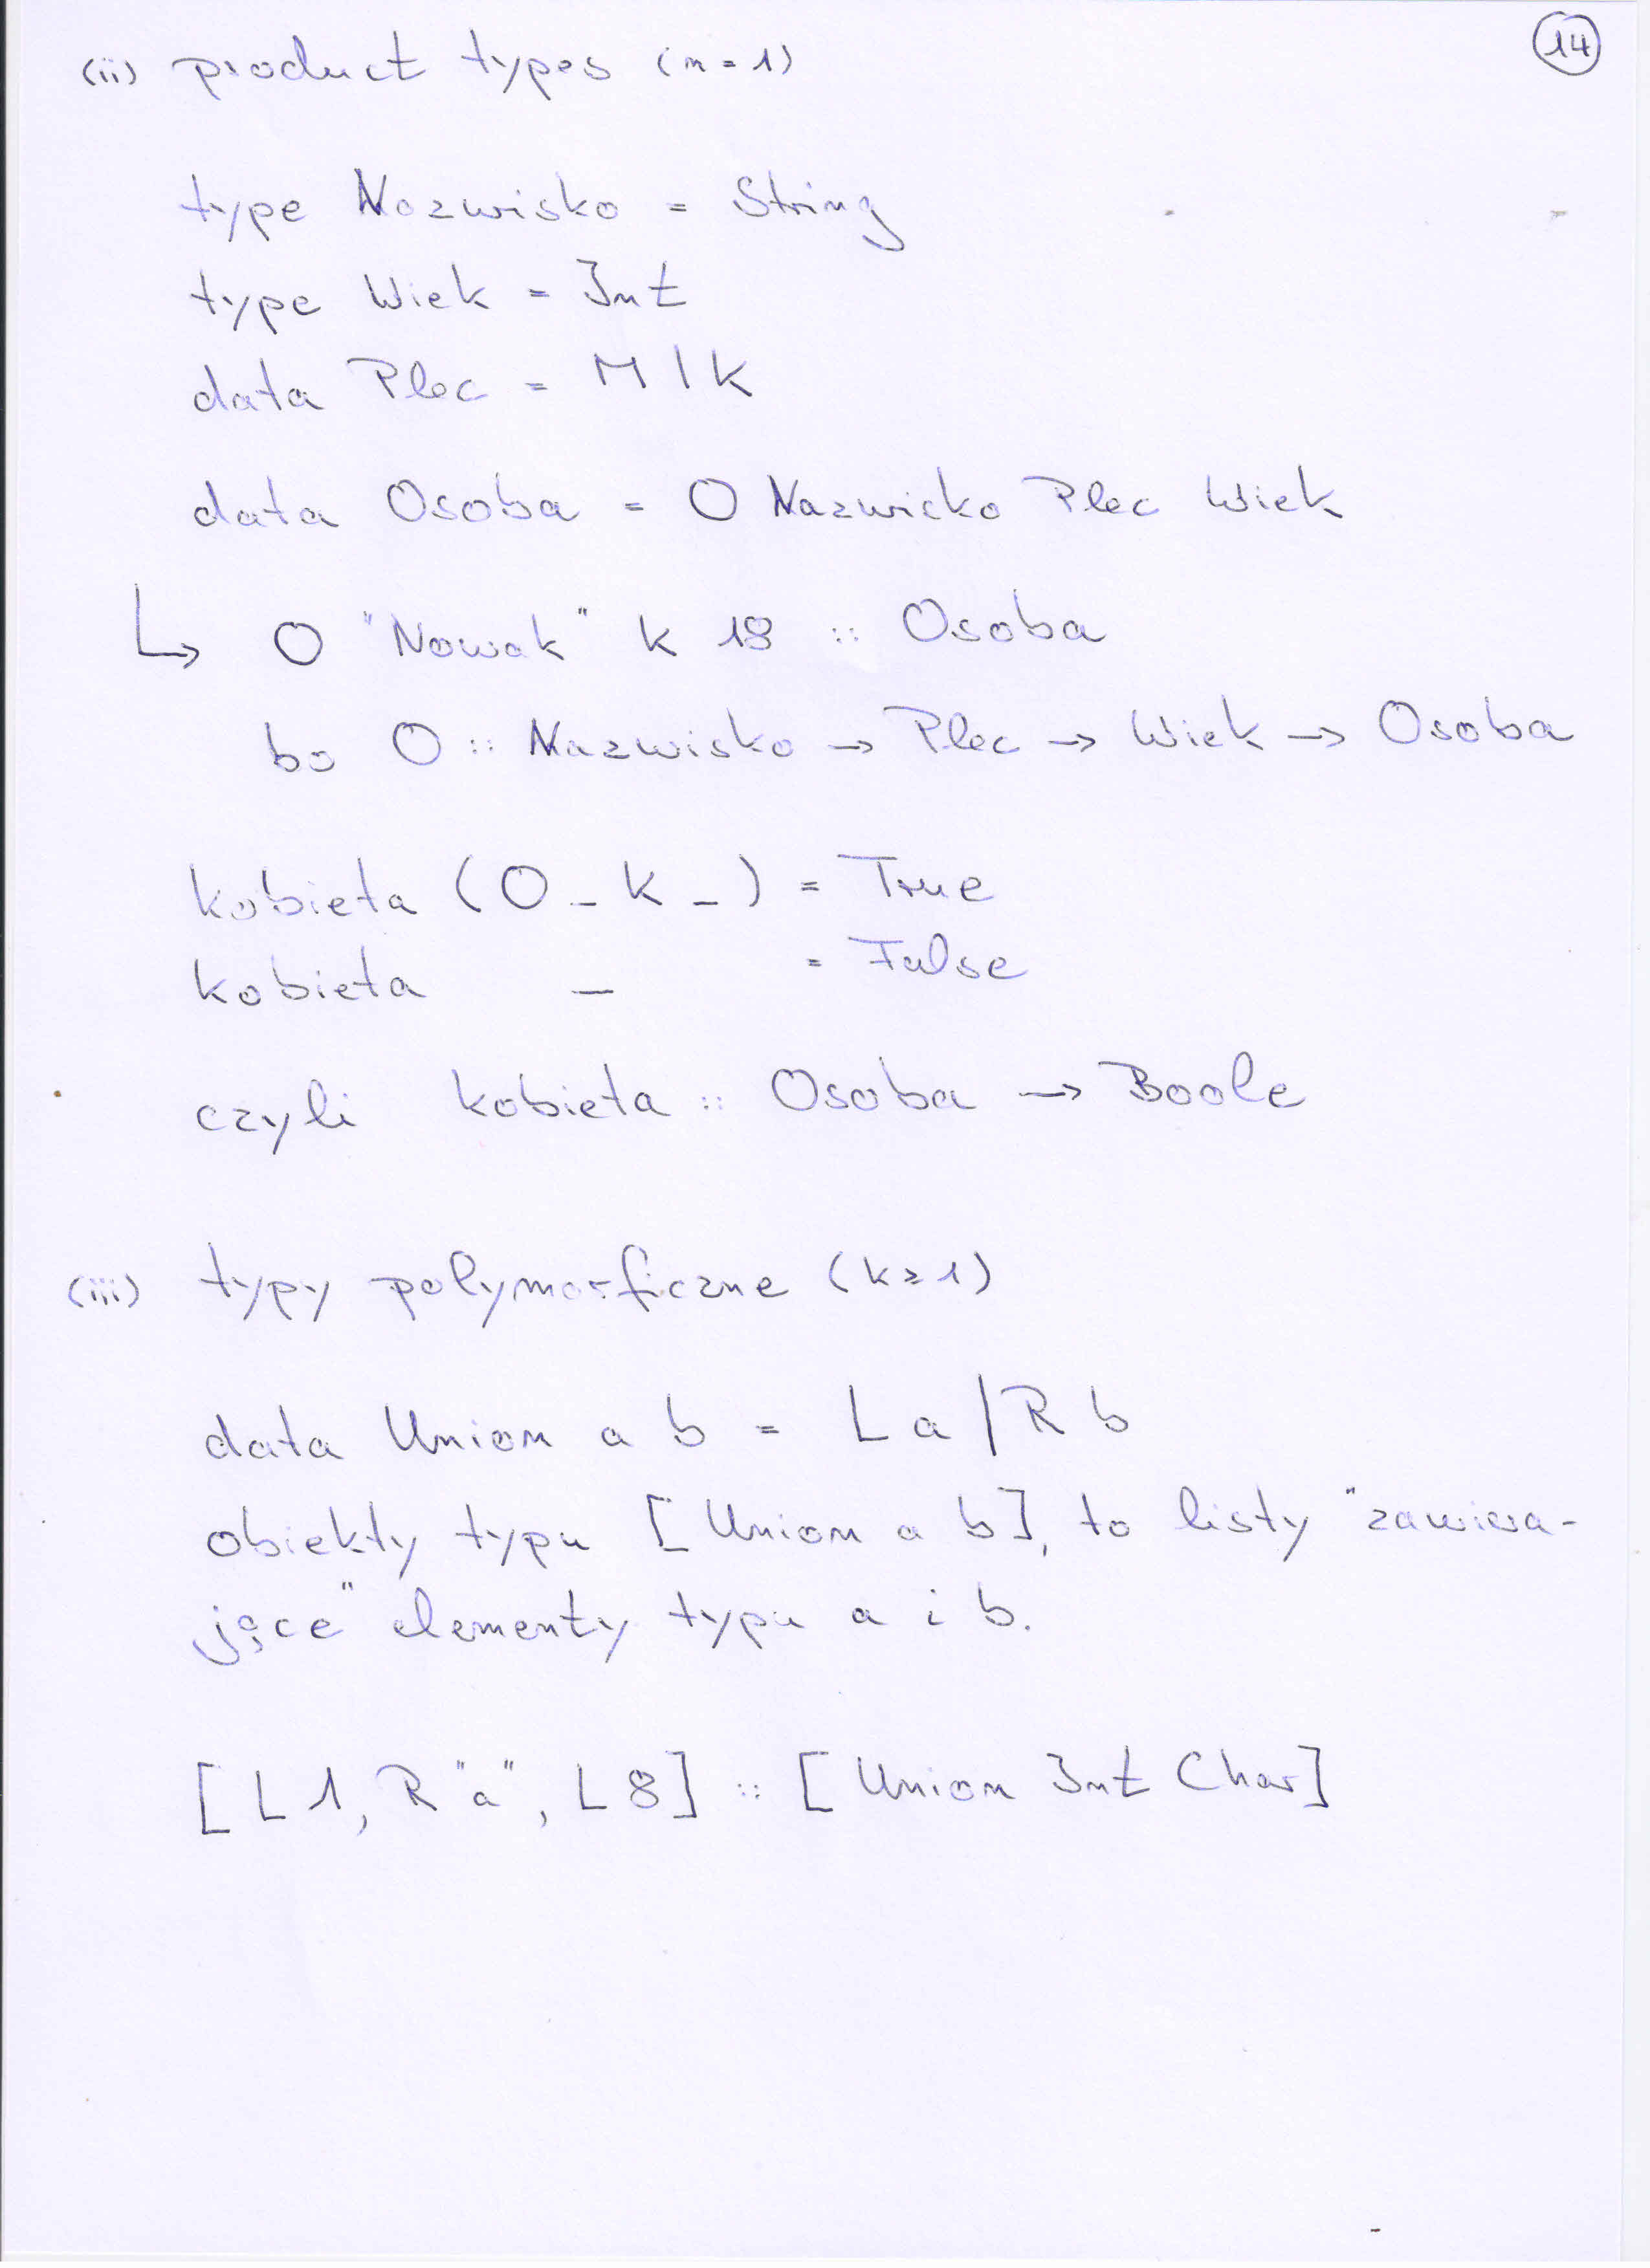 14
(ii) product types (n=1)
type Nazwisko = String
type Wiek = Int
data Plec = M | K
data Osoba = O Nazwisko Plec Wiek
↳ O "Nowak" K 18 :: Osoba
bo O :: Nazwisko → Plec → Wiek → Osoba
kobieta (O _ K _) = True
kobieta _ = False
czyli kobieta :: Osoba → Boole
(iii) typy polymorficzne (k≥1)
data Union a b = L a | R b
obiekty typu [Union a b], to listy "zawiera-
jące" elementy typu a i b.
[L 1, R "a", L 8] :: [Union Int Char]